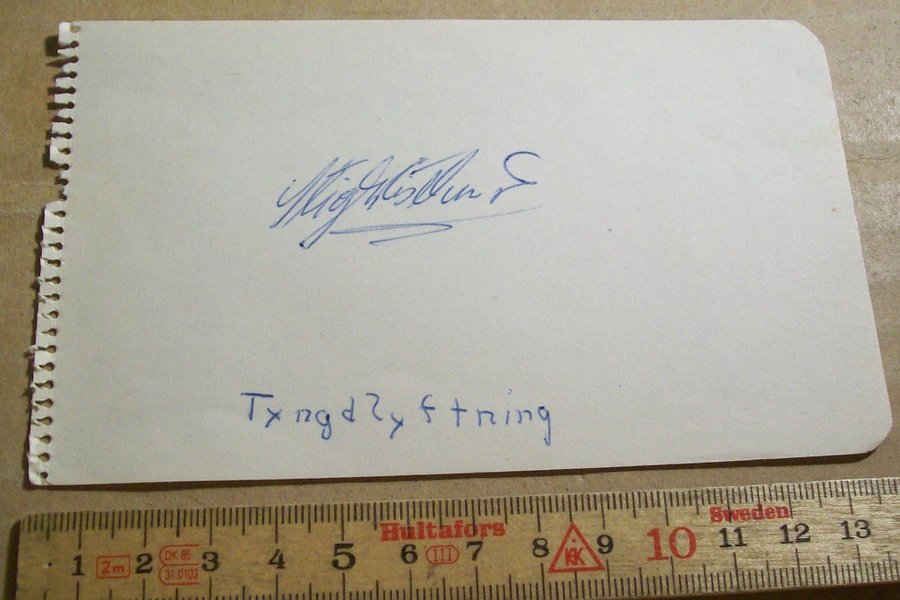 Tyngdlyftning
Hultafors Sweden
1 2m 2 DK 85 3 4 5 6 III 7 8 9 10 11 12 13
31.0103